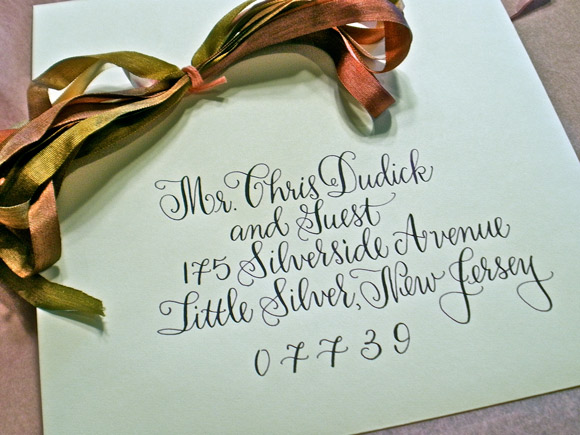 Mr. Chris Dudick
and Guest
175 Silverside Avenue
Little Silver, New Jersey
07739